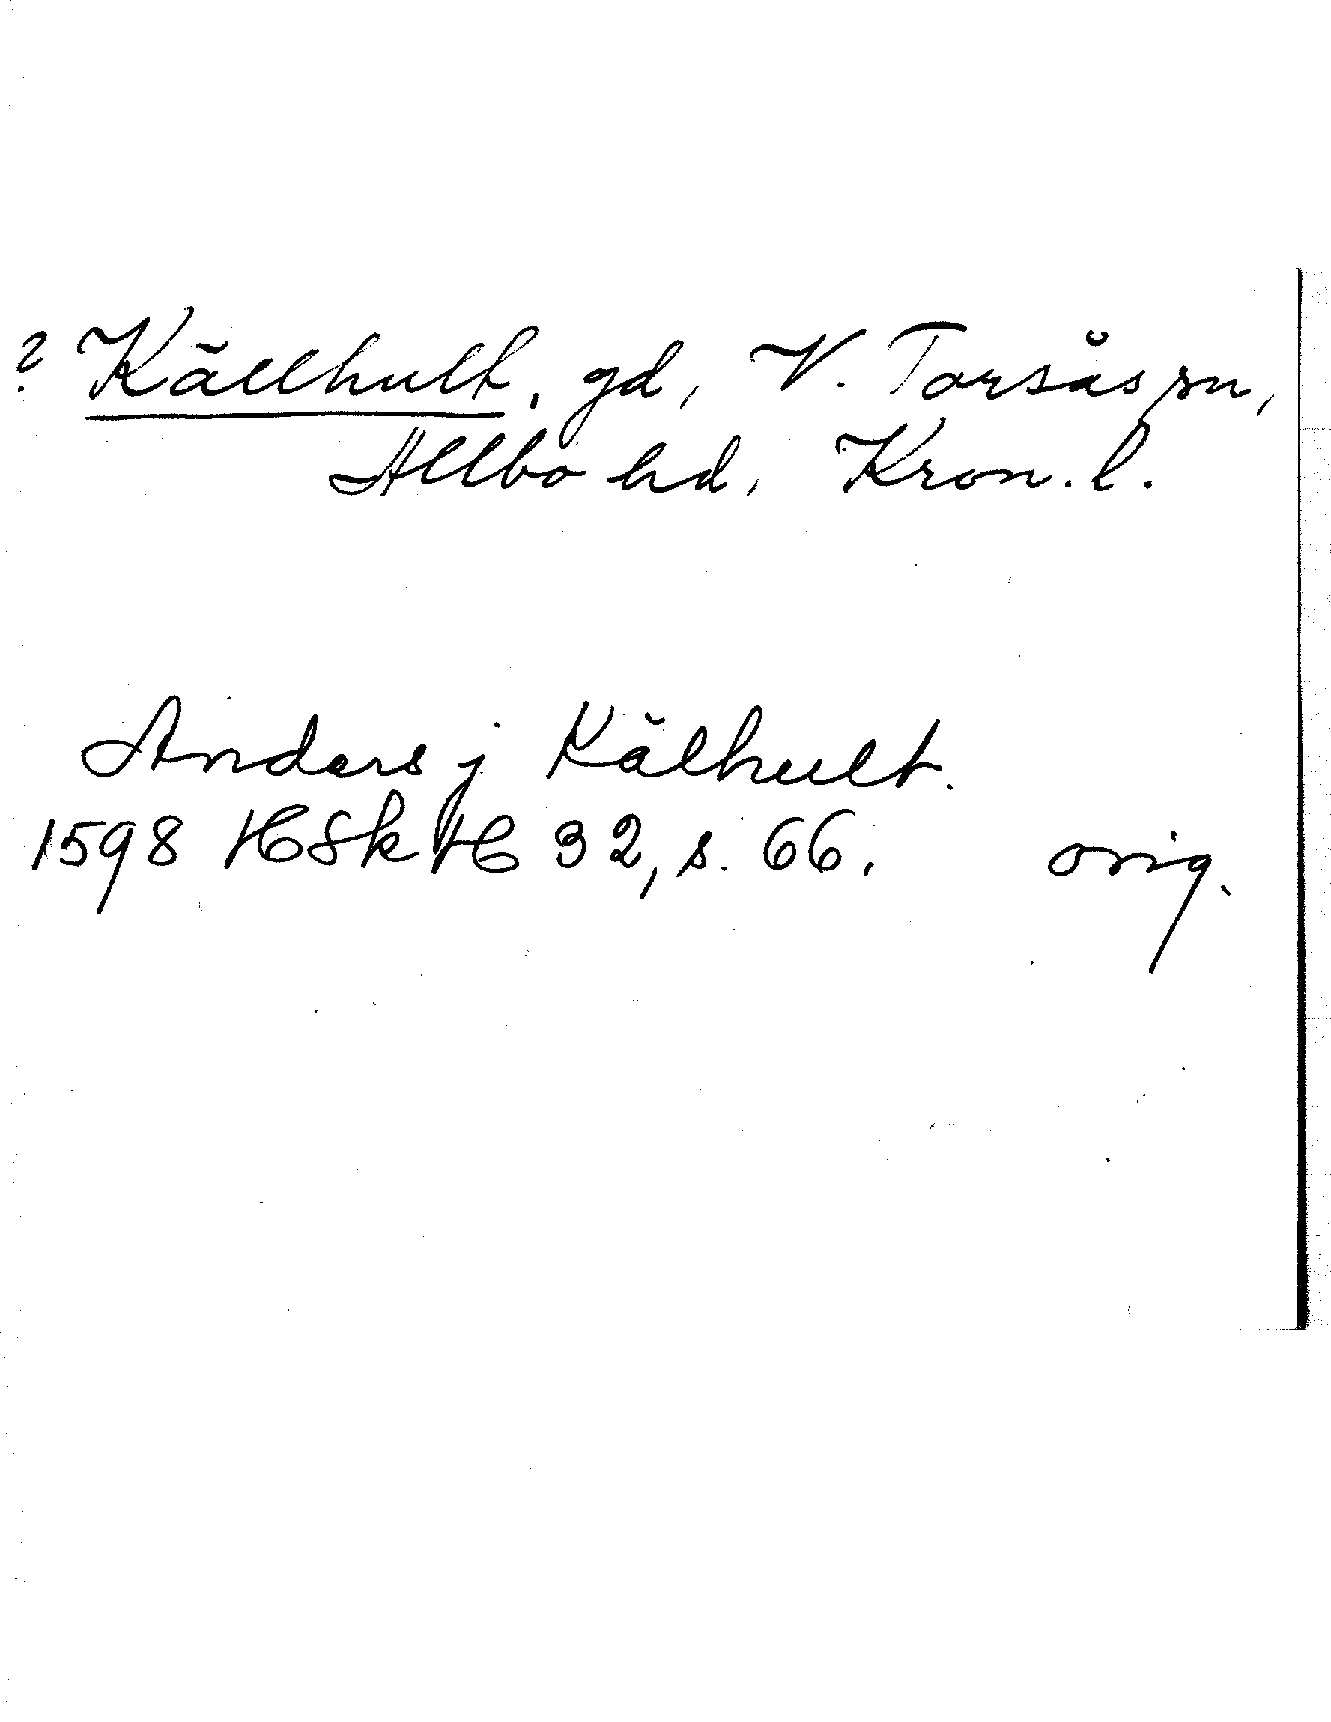 ? Källhult, gd, V. Torsås sn,
Allbo hd, Kron. l.
Anders j Kälhult.
1598 HSkH 32, s. 66. orig.